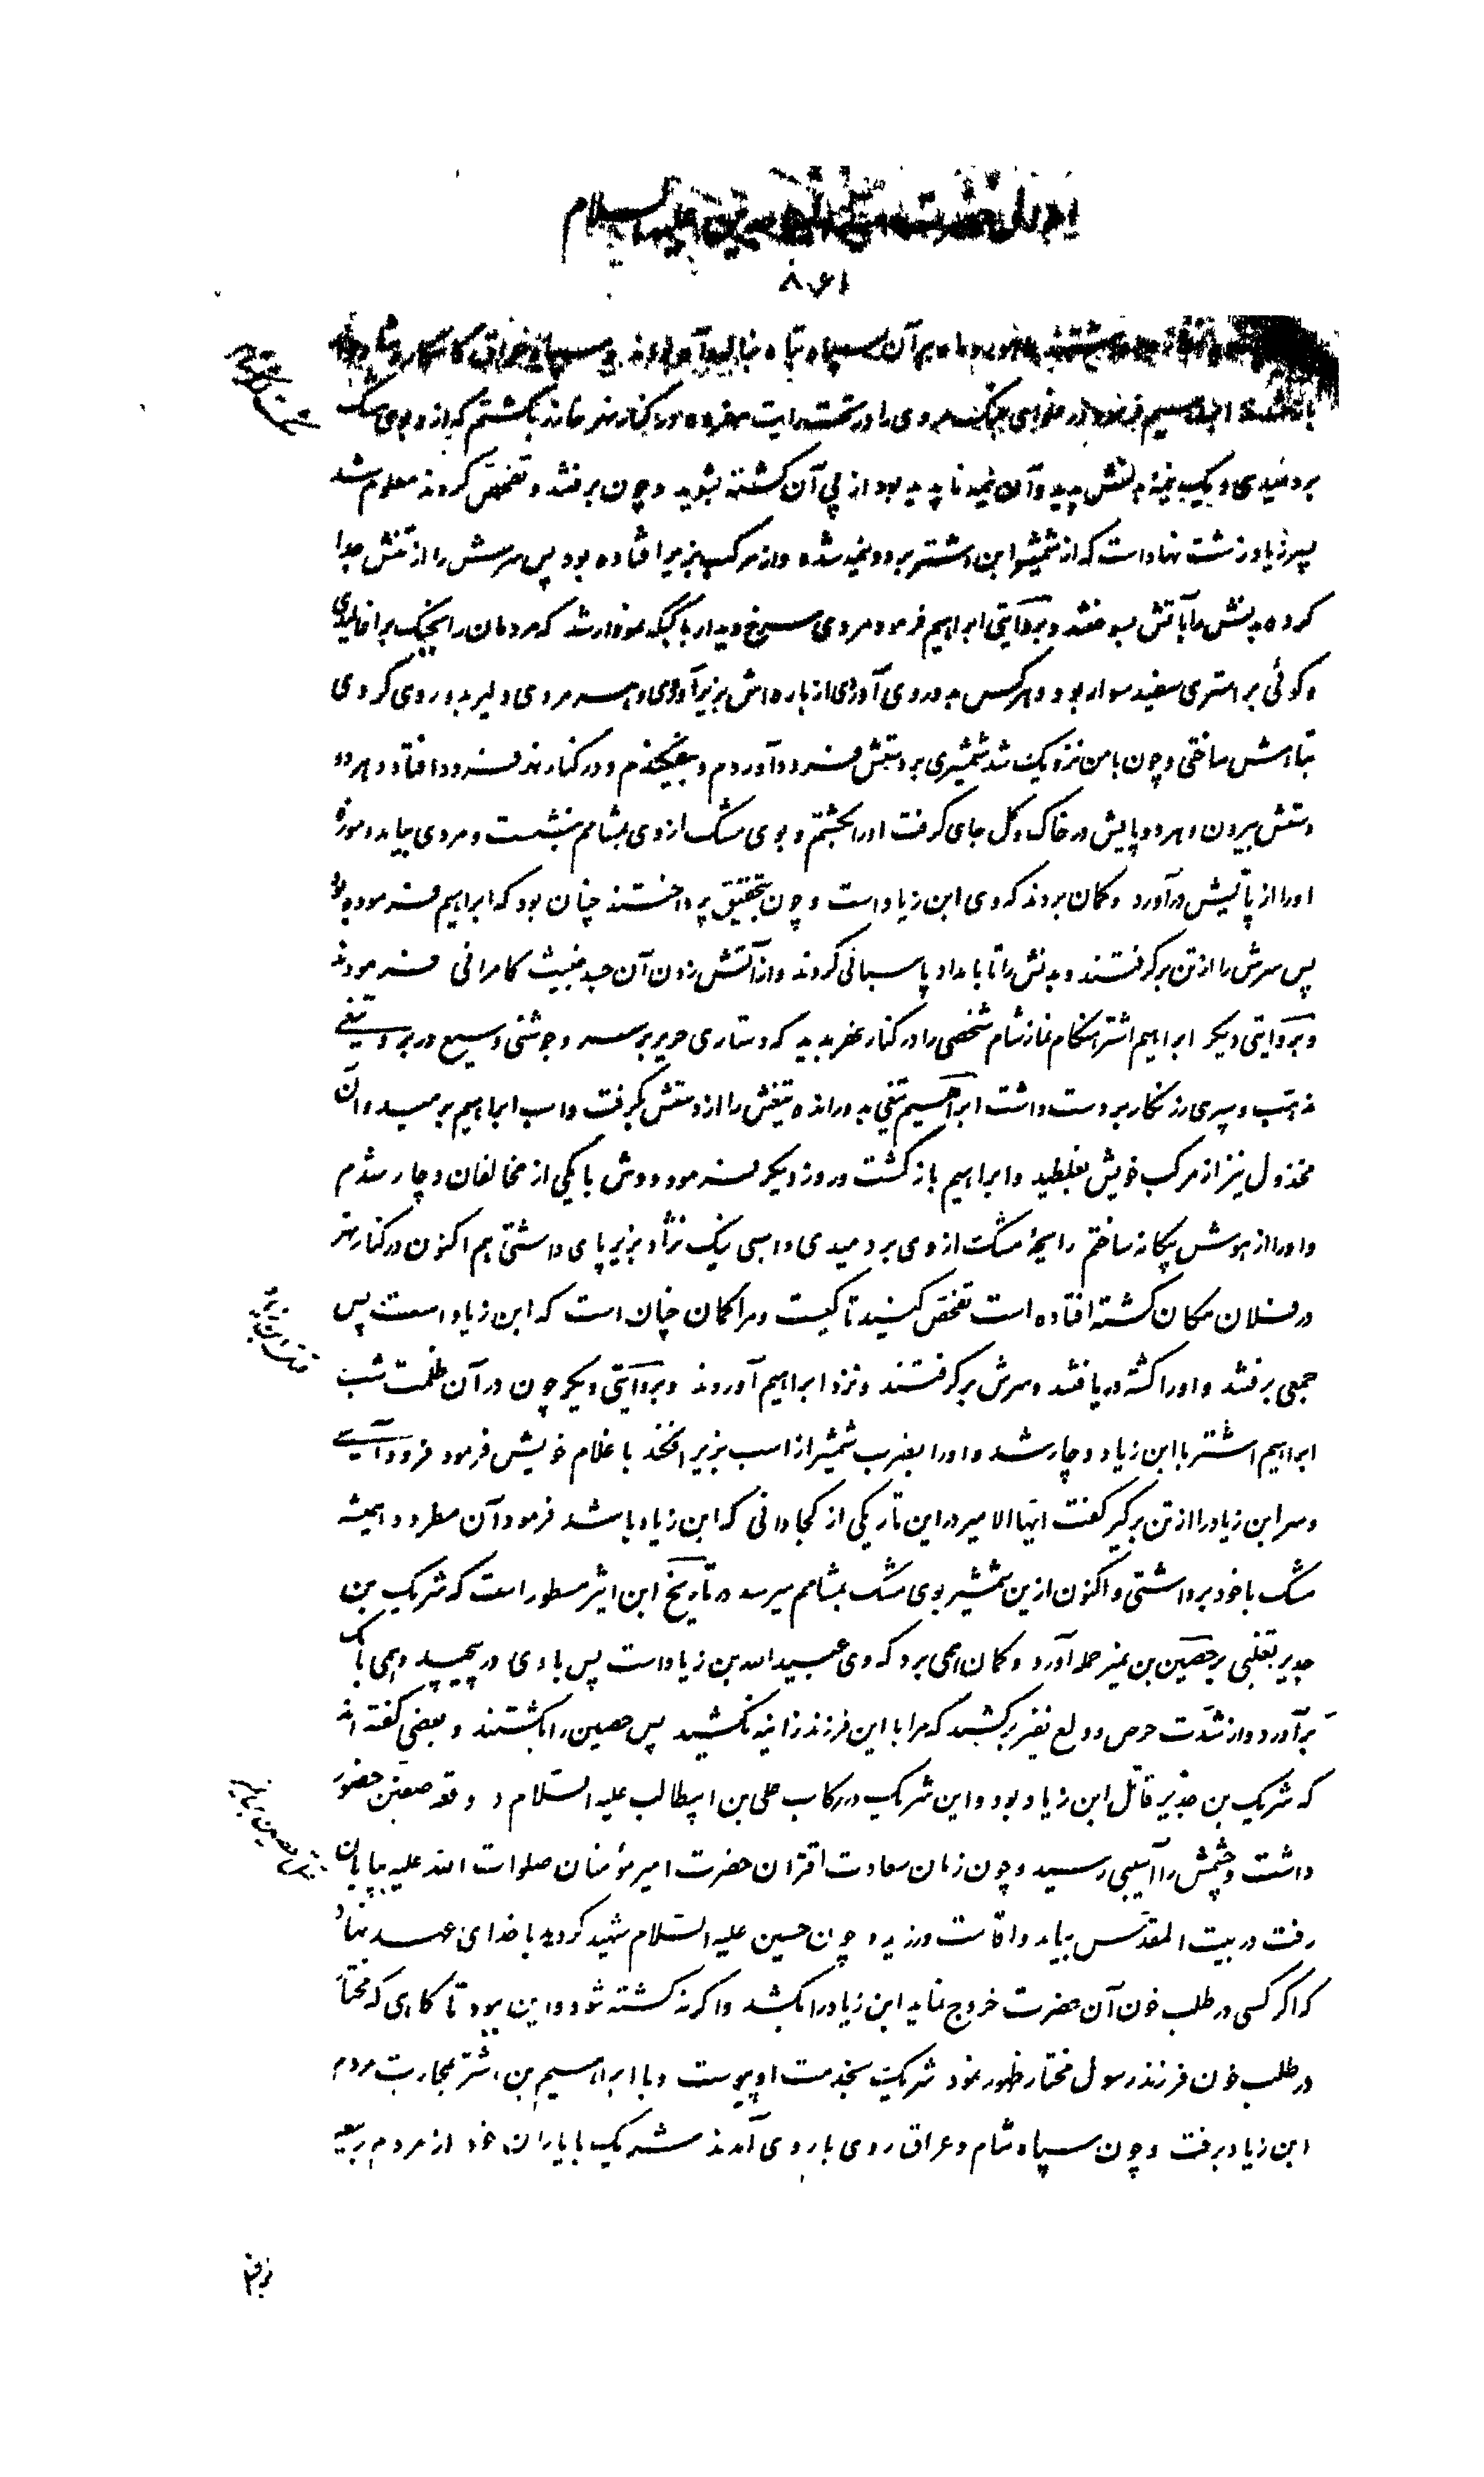 احوال حضرت علیه السلام
۸۶۱
آن سپاه تباه
در تحت رایت در کنار نهر خازر بکشتم که از وی بوی مشک
بردمیدی و یک نیمهٔ بدنش پدید و آن نیمه ناپدید بود از پی آن کشته بشوید و چون برفتند و تفحص کردند معلوم شد
پسر زیاد زشت نهاد است که از شمشیر ابن اشتر بر دو نیمه شده و از مرکب بزیر افتاده بود پس سرش را از تنش جدا
کرده بدنش را بآتش بسوختند و بروایتی ابراهیم فرمود مردی سرخ دیدار با کبکبه نمودار شد که مردمان را بجنگ برافغالیدی
و گوئی بر استری سفید سوار بود و هر کس بدو روی آوردی از باره‌اش بزیر آوردی و هر مردی دلیر بدو روی کردی
تباهش ساختی و چون با من نزدیک شد شمشیری بر دستش فرود آوردم و بیفکندم و در کنار نهر فرود افتاد و هر دو
دستش بیرون و هر دو پایش در خاک و گل جای گرفت او را بکشتم و بوی مشک از وی بمشامم بنشست و مردی بیامد و موزهٔ
او را از پایش در آورد و گمان بردند که وی ابن زیاد است و چون بتحقیق پرداختند چنان بود که ابراهیم فرموده بود
پس سرش را از تن برگرفتند و بدنش را تا بامداد پاسبانی کردند و از آتش زدن آن جسد خبیث کامرانی فرمودند
و بروایتی دیگر ابراهیم اشتر هنگام نماز شام شخصی را در کنار نهر بدید که دستاری حریر بر سر و جوشنی وسیع در بر و تیغی
مذهب و سپری زرنگار بر دست داشت ابراهیم تیغی بدو راند و تیغش را از دستش گرفت و اسب ابراهیم برمید و آن
مخذول نیز از مرکب خویش بغلطید و ابراهیم بازگشت و روز دیگر فرمود دوش با یکی از مخالفان دچار شدم
و او را از هوش بیگانه ساختم رایحهٔ مشک از وی بردمیدی و اسبی نیک نژاد بزیر پای داشتی هم اکنون در کنار نهر
در فلان مکان کشته افتاده است تفحص کنید تا کیست و مرا گمان چنان است که ابن زیاد است پس
جمعی برفتند و او را کشته دریافتند و سرش برگرفتند و نزد ابراهیم آوردند و بروایتی دیگر چون در آن ظلمت شب
ابراهیم اشتر با ابن زیاد دچار شد و او را بضرب شمشیر از اسب بزیر افکند با غلام خویش فرمود فرود آی
و سر ابن زیاد را از تن برگیر گفت ایها الامیر در این تاریکی از کجا دانی که ابن زیاد باشد فرمود آن مطرود همیشه
مشک با خود برداشتی و اکنون ازین شمشیر بوی مشک بمشامم میرسد در تاریخ ابن اثیر مسطور است که شریک بن
جدیر تغلبی بر حصین بن نمیر حمله آورد و گمان همی برد که وی عبیدالله بن زیاد است پس با وی در پیچید و همی بانگ
برآورد و از شدت حرص و ولع نفیر برکشید که مرا با این فرزند زانیه بکشید پس حصین را بکشتند و بعضی گفته‌اند
که شریک بن جدیر قاتل ابن زیاد بود و این شریک در رکاب علی بن ابیطالب علیه السلام در وقعه صفین حضور
داشت و چشمش را آسیبی رسید و چون زمان سعادت اقتران حضرت امیر مؤمنان صلوات الله علیه بپایان
رفت در بیت المقدس بیامد و اقامت ورزید و چون حسین علیه السلام شهید گردید با خدای عهد بنهاد
که اگر کسی در طلب خون آن حضرت خروج نماید ابن زیاد را بکشد و اگر نه کشته شود و این ببود تا گاهی که مختار
در طلب خون فرزند رسول مختار ظهور نمود شریک بخدمت او پیوست و با ابراهیم بن اشتر بمحاربت مردم
ابن زیاد برفت و چون سپاه شام و عراق روی با روی آمدند شریک با یاران خود از مردم ربیعه